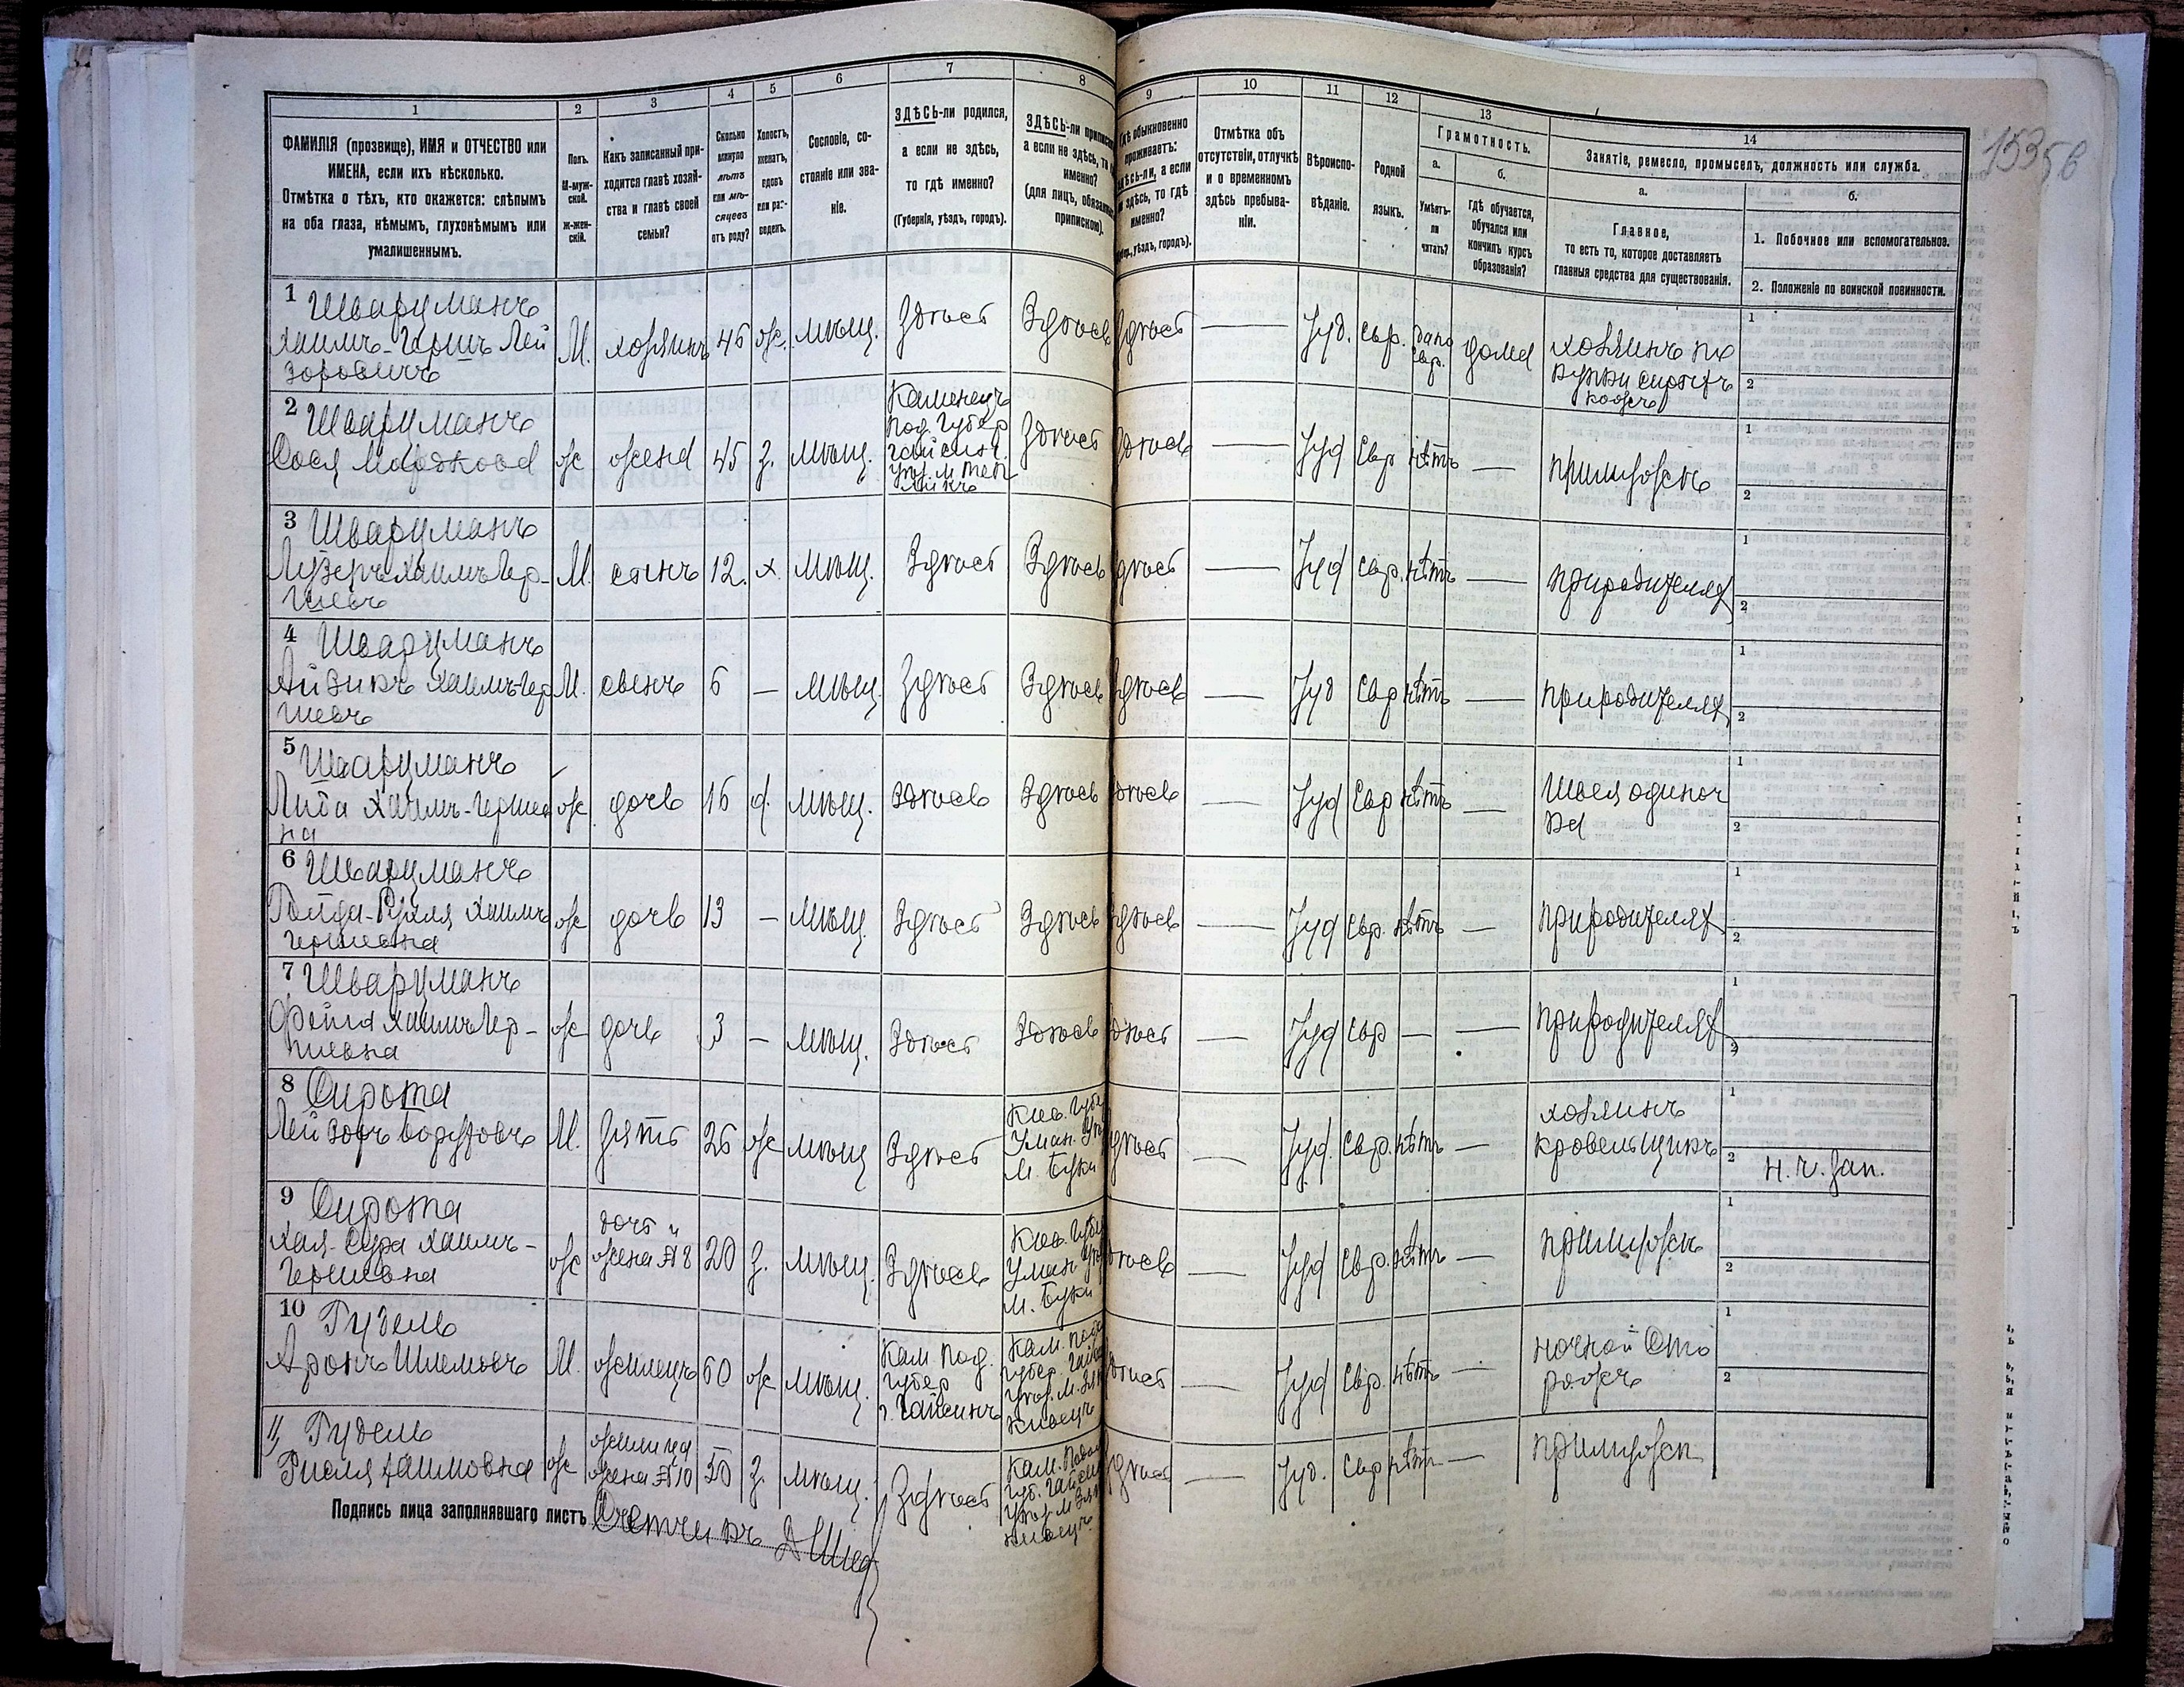 1
2
3
4
5
6
7
8
9
10
11
12
13
14
ФАМИЛІЯ (прозвище), ИМЯ и ОТЧЕСТВО или
ИМЕНА, если ихъ нѣсколько.
Отмѣтка о тѣхъ, кто окажется: слѣпымъ
на оба глаза, нѣмымъ, глухонѣмымъ или
умалишеннымъ.
Полъ.
М-муж-
ской.
Ж-жен-
скій.
Какъ записанный при-
ходится главѣ хозяй-
ства и главѣ своей
семьи?
Сколько
минуло
лѣтъ
или мѣ-
сяцевъ
отъ роду?
Холостъ,
женатъ,
вдовъ
или раз-
веденъ.
Сословіе, со-
стояніе или зва-
ніе.
ЗДѢСЬ-ли родился,
а если не здѣсь,
то гдѣ именно?
(Губернія, уѣздъ, городъ).
ЗДѢСЬ-ли
а если не здѣсь,
именно?
(для лицъ,
припискою).
обыкновенно
проживаетъ:
а если
здѣсь, то гдѣ
именно?
уѣздъ, городъ).
Отмѣтка объ
отсутствіи, отлучкѣ
и о временномъ
здѣсь пребыва-
ніи.
Вѣроиспо-
вѣданіе.
Родной
языкъ.
Грамотность.
а.
Умѣетъ-
ли
читать?
б.
Гдѣ обучается,
обучался или
кончилъ курсъ
образованія?
Занятіе, ремесло, промыселъ, должность или служба.
а.
Главное,
то есть то, которое доставляетъ
главныя средства для существованія.
б.
1. Побочное или вспомогательное.
2. Положеніе по воинской повинности.
1 Шварцманъ
Хаимъ-Гершъ Лей
зоровичъ
М. хозяинъ 46 ж. мѣщ. Здѣсь Здѣсь Здѣсь — Іуд. Евр. дома
хозяинъ
1
2
2 Шварцманъ
Сося Мордкова ж жена 45 з. мѣщ.
Каменецъ
Под. Губер
Здѣсь Здѣсь — Іуд Евр нѣтъ — при мужѣ
1
2
3 Шварцманъ
Лузеръ Хаимъ Гер-
шевъ
М. сынъ 12. х. мѣщ. Здѣсь Здѣсь Здѣсь — Іуд Евр. нѣтъ — при родителях
1
2
4 Шварцманъ
Айзикъ Хаимъ-Гер
шевъ
М. сынъ 6 — мѣщ. Здѣсь Здѣсь Здѣсь — Іуд Евр нѣтъ — при родителях
1
2
5 Шварцманъ
Хаимъ-Герше
на
ж дочь 16 д. мѣщ. Здѣсь Здѣсь Здѣсь — Іуд Евр нѣтъ — Швея одиноч
ка
1
2
6 Шварцманъ
Хаимъ
Гершевна
ж дочь 13 — мѣщ. Здѣсь Здѣсь Здѣсь — Іуд Евр. нѣтъ — при родителях
1
2
7 Шварцманъ
Фейга Хаимъ Гер-
шевна
ж дочь 3 — мѣщ. Здѣсь Здѣсь Здѣсь — Іуд Евр — — при родителях
1
2
8 Сирота
Лейзоръ Боруховъ М. Зять 26 ж мѣщ Здѣсь
Кіев. Губ
Уман. Уѣ
М. Буки
Здѣсь — Іуд. Евр. нѣтъ —
хозяинъ
кровельщикъ
1
2
н. ч. зап.
9 Сирота
Хая-Сура Хаимъ-
Гершевна
ж
дочь и
жена №8
20 з. мѣщ. Здѣсь
Кіев. Губ
Уман Уѣ
М. Буки
Здѣсь — Іуд Евр. нѣтъ — при мужѣ
1
2
10 Гудель
Аронъ Шлемовъ М. жилецъ 60 ж мѣщ.
Кам. Под.
губер
г. Гайсинъ
Кам. Под
губер. Гайс
Здѣсь — Іуд Евр. нѣтъ —
ночной Сто
рожъ
1
2
11 Гудель
Хаимовна ж
жилица
жена №10
50 з. мѣщ. Здѣсь
Кам. Подол
Губ. Гайси
Здѣсь — Іуд. Евр нѣтъ — при мужѣ
Подпись лица заполнявшаго листъ Счетчикъ